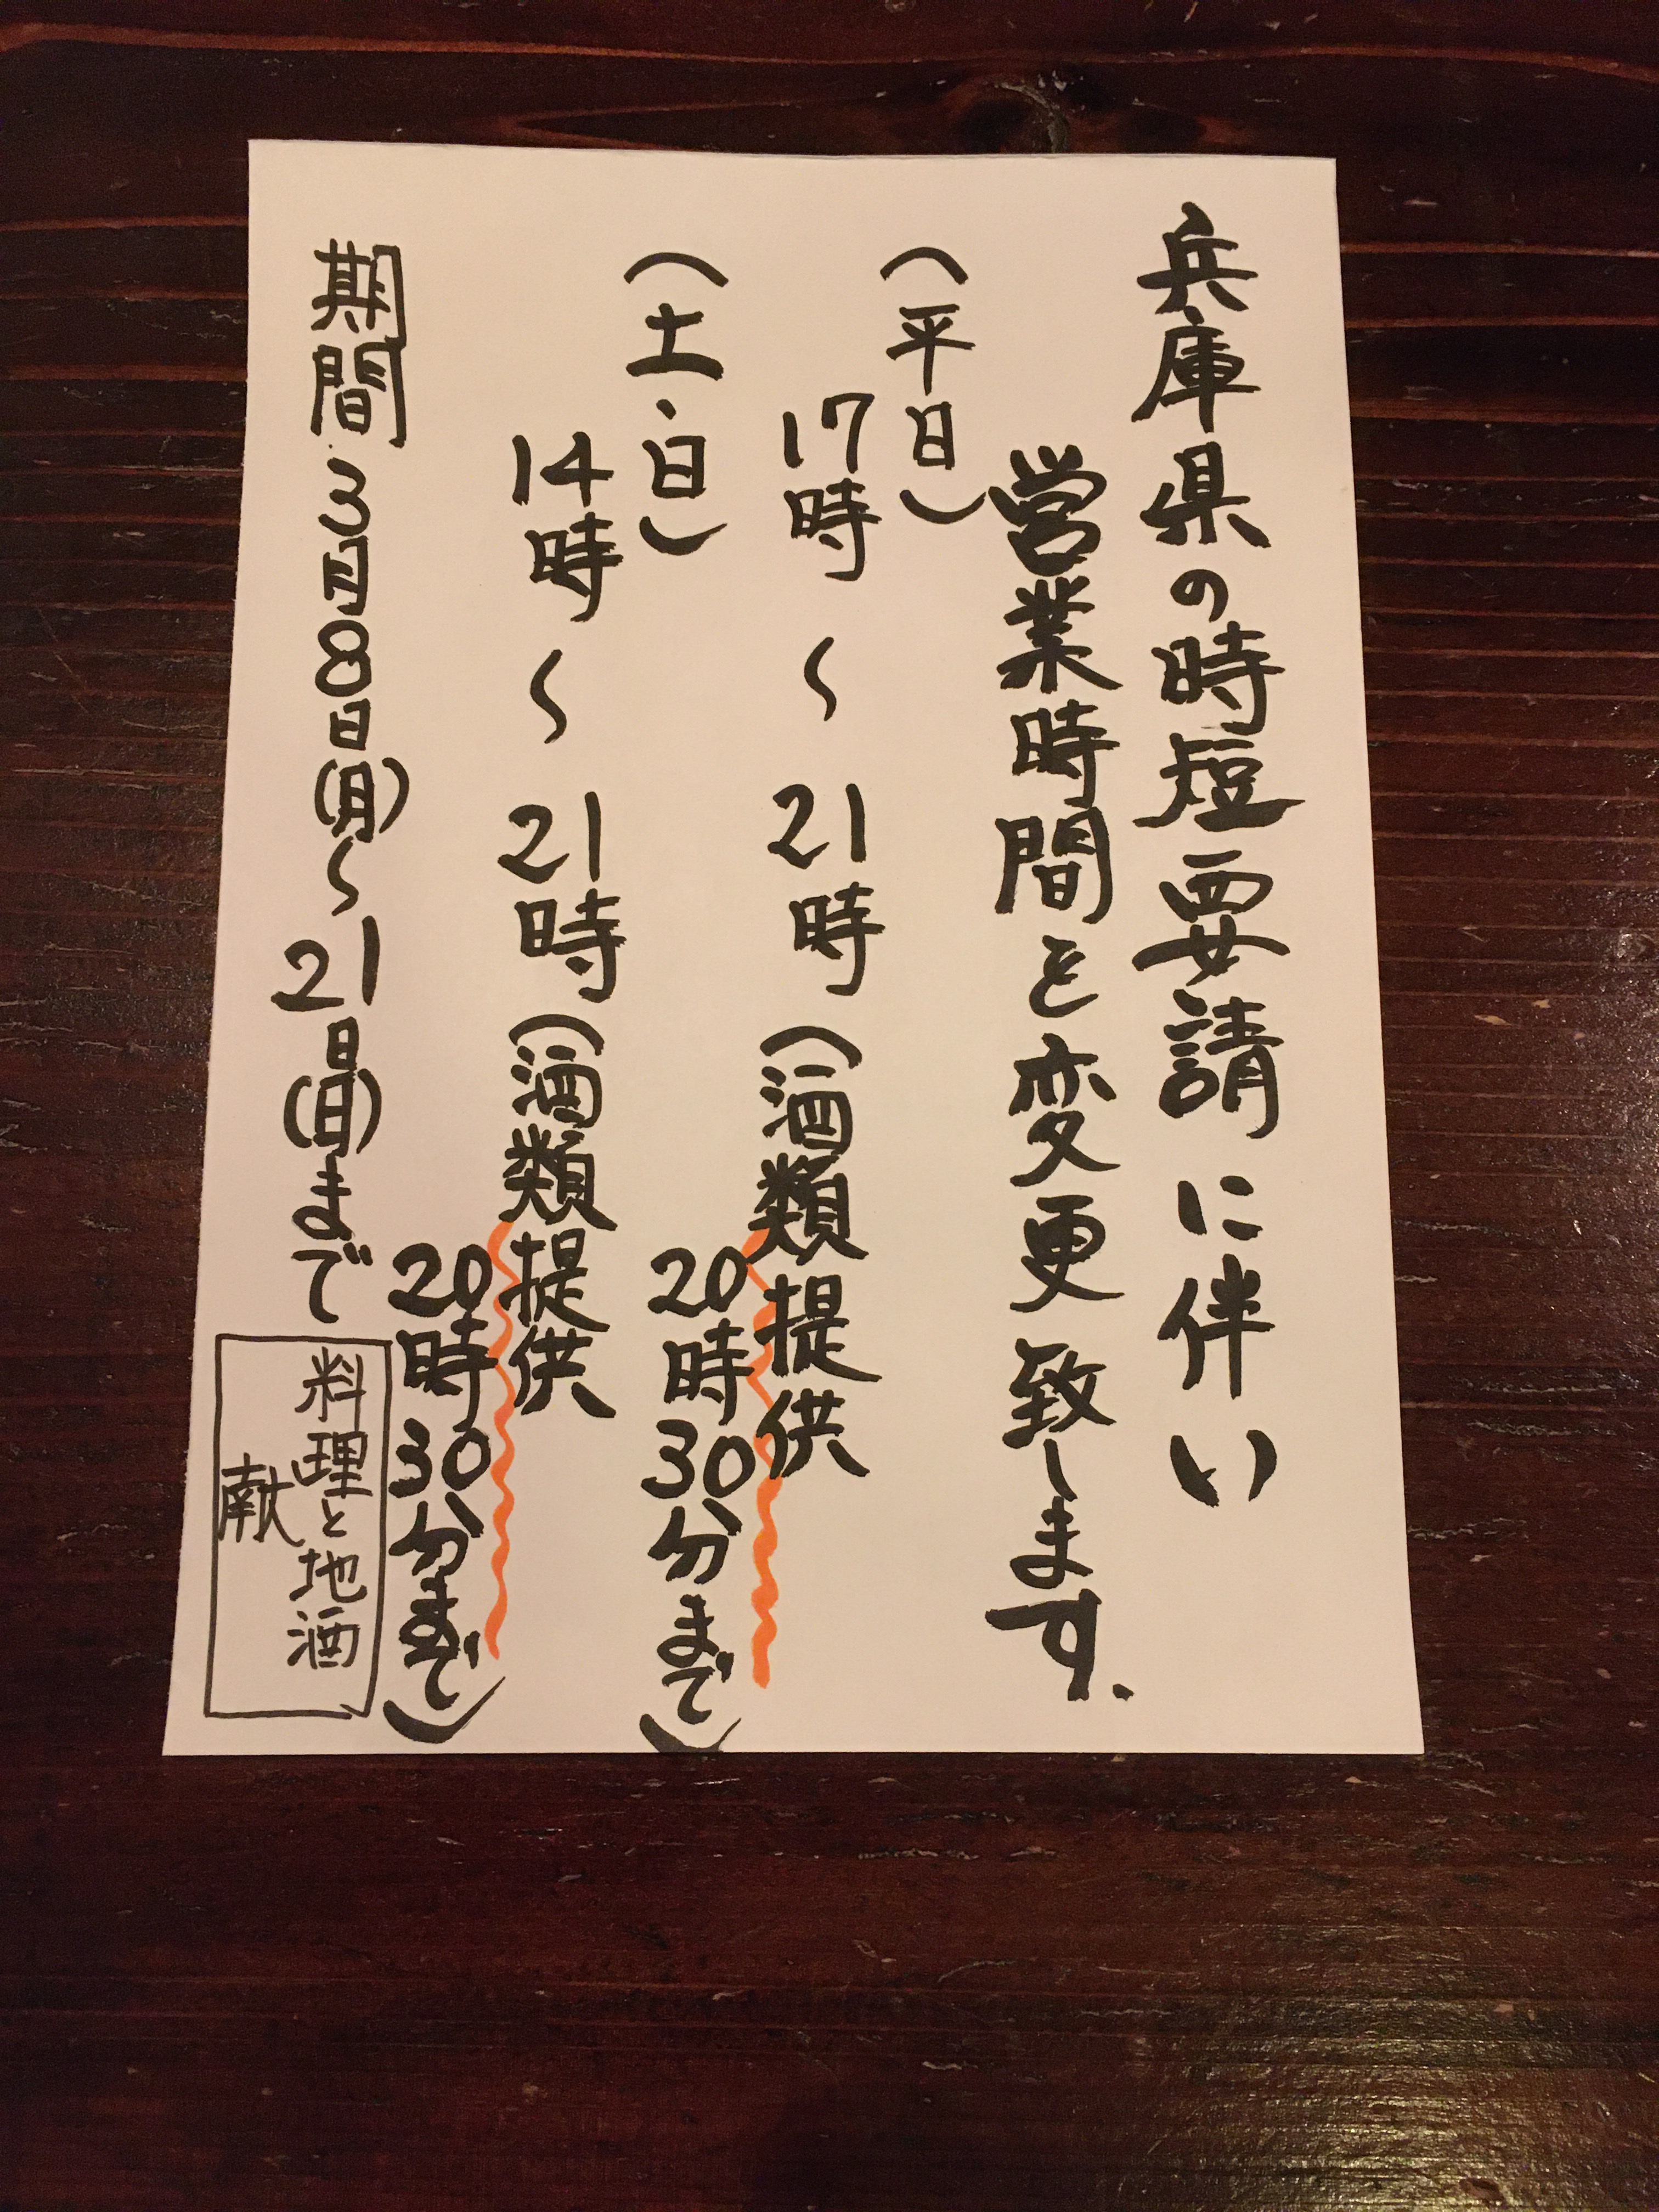 兵庫県の時短要請に伴い
営業時間を変更致します.
(平日)
17時～21時(酒類提供
20時30分まで)
(土・日)
14時～21時(酒類提供
20時30分まで)
期間 3月8日(月)～21日(日)まで
料理と地酒
献